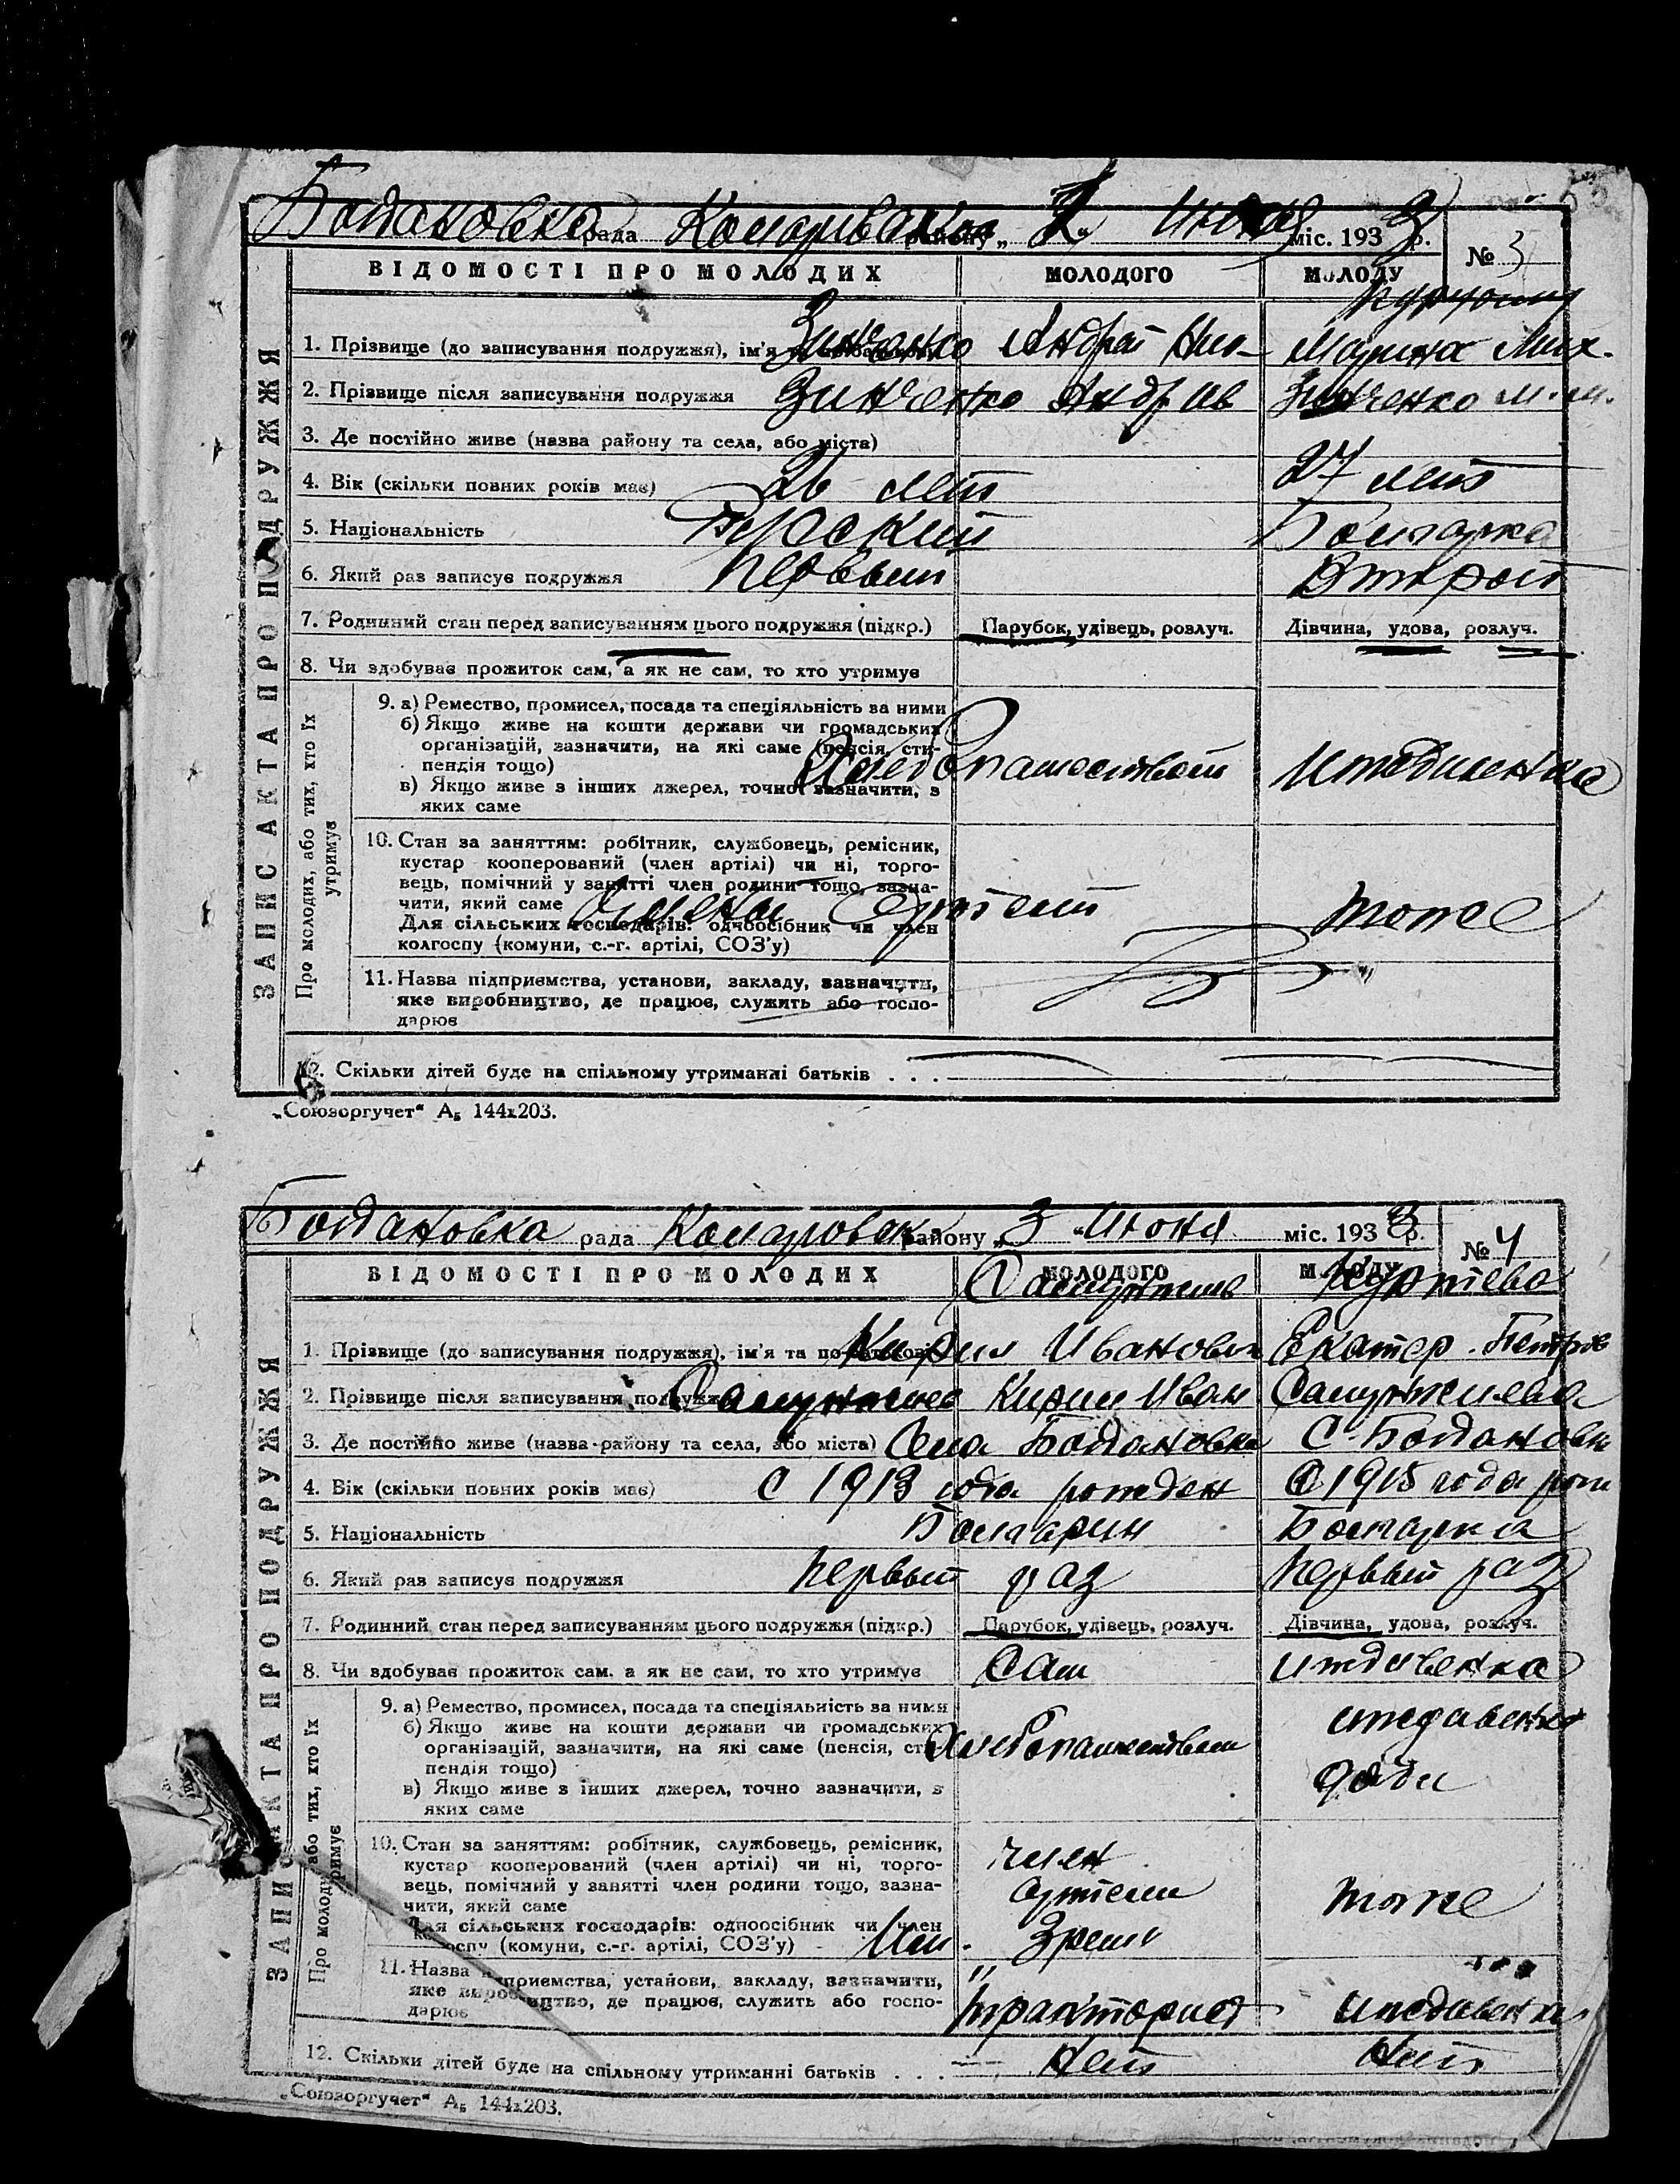 Богдановка рада района „ “ Июня міс. 1933 р. № 3
ВІДОМОСТІ ПРО МОЛОДИХ МОЛОДОГО МОЛОДУ
ЗАПИС АКТА ПРО ПОДРУЖЖЯ
1. Прізвище (до записування подружжя), ім'я Зинченко Андрей Ник- Марина Мих.
2. Прізвище після записування подружжя Зинченко Андрив Зинченко М. М.
3. Де постійно живе (назва району та села, або міста)
4. Вік (скільки повних років має) 26 лет 27 лет
5. Національність Руский Болгарка
6. Який раз записує подружжя первый Второй
7. Родинний стан перед записуванням цього подружжя (підкр.) Парубок, удівець, розлуч. Дівчина, удова, розлуч.
8. Чи здобуває прожиток сам, а як не сам, то хто утримує
Про молодих, або тих, хто їх утримує
9. а) Ремество, промисел, посада та спеціяльність за ними
б) Якщо живе на кошти держави чи громадських
організацій, зазначити, на які саме (пенсія, сти-
пендія тощо) Хлебопашеством Иждивенка
в) Якщо живе з інших джерел, точно зазначити, з
яких саме
10. Стан за заняттям: робітник, службовець, ремісник,
кустар кооперований (член артілі) чи ні, торго-
вець, помічний у занятті член родини тощо, зазна-
чити, який саме Член Артели тоже
Для сільських господарів: одноосібник чи член
колгоспу (комуни, с.-г. артілі, СОЗ'у)
11. Назва підприємства, установи, закладу, зазначити,
яке виробництво, де працює, служить або госпо-
дарює
12. Скільки дітей буде на спільному утриманні батьків . . .
„Союзоргучет“ А₅ 144х203.
Богдановка рада Комаровск району „ 3 “ Июня міс. 1933 р. № 4
ВІДОМОСТІ ПРО МОЛОДИХ МОЛОДОГО МОЛОДУ
ЗАПИС АКТА ПРО ПОДРУЖЖЯ
Куртева
1. Прізвище (до записування подружжя), ім'я та по-батькові Кирил Иванович Екатер. Петров
2. Прізвище після записування подружжя Кирил Иван
3. Де постійно живе (назва району та села, або міста) Села Богдановка С. Богдановка
4. Вік (скільки повних років має) С 1913 года рожден С 1915 года рож
5. Національність Болгарин Болгарка
6. Який раз записує подружжя первый раз первый раз
7. Родинний стан перед записуванням цього подружжя (підкр.) Парубок, удівець, розлуч. Дівчина, удова, розлуч.
8. Чи здобуває прожиток сам, а як не сам, то хто утримує Сам иждивенка
Про молодих, або тих, хто їх утримує
9. а) Ремество, промисел, посада та спеціяльність за ними
б) Якщо живе на кошти держави чи громадських иждивенка
організацій, зазначити, на які саме (пенсія, сти- Хлебопашеством
пендія тощо)
в) Якщо живе з інших джерел, точно зазначити, з
яких саме
10. Стан за заняттям: робітник, службовець, ремісник, член
кустар кооперований (член артілі) чи ні, торго- артели
вець, помічний у занятті член родини тощо, зазна- тоже
чити, який саме
Для сільських господарів: одноосібник чи член
колгоспу (комуни, с.-г. артілі, СОЗ'у)
11. Назва підприємства, установи, закладу, зазначити,
яке виробництво, де працює, служить або госпо- тракторист иждивенка
дарює
12. Скільки дітей буде на спільному утриманні батьків . . . Нет Нет
„Союзоргучет“ А₅ 144х203.